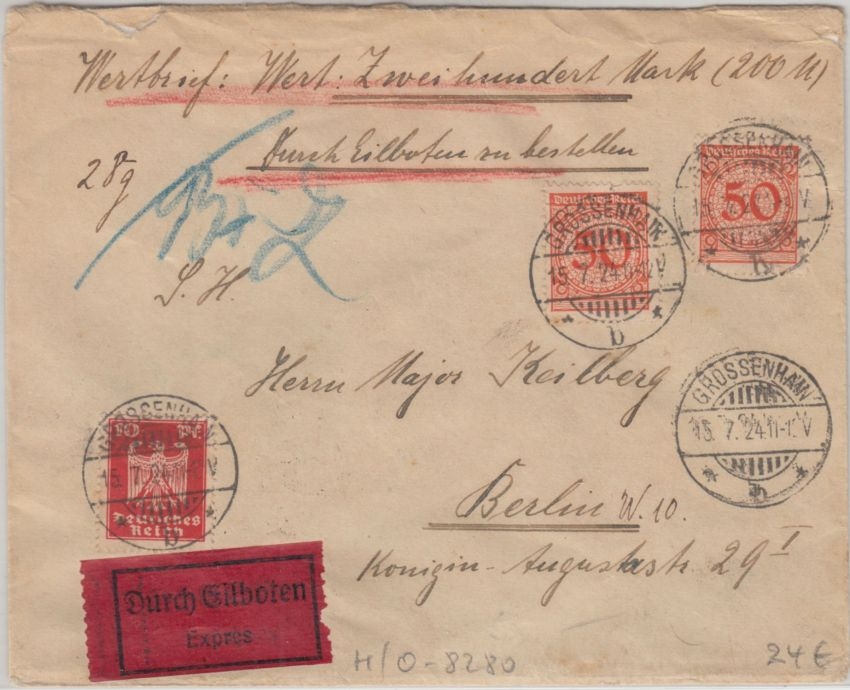 Wertbrief: Wert: Zweihundert Mark (200 M)
Durch Eilboten zu bestellen
28 g
S. H.
Deutsches Reich
50
GROSSENHAIN
15. 7. 24.11-12V
* b *
Deutsches Reich
50
GROSSENHAIN
* b *
Herrn Major Keilberg
GROSSENHAIN
15. 7. 24.11-12V
* b *
10 Pf
Deutsches
Reich
GROSSENHAIN
* b *
Berlin W. 10.
Königin-Augustastr. 29 I
Durch Eilboten
Expres
H/O-8280
24€